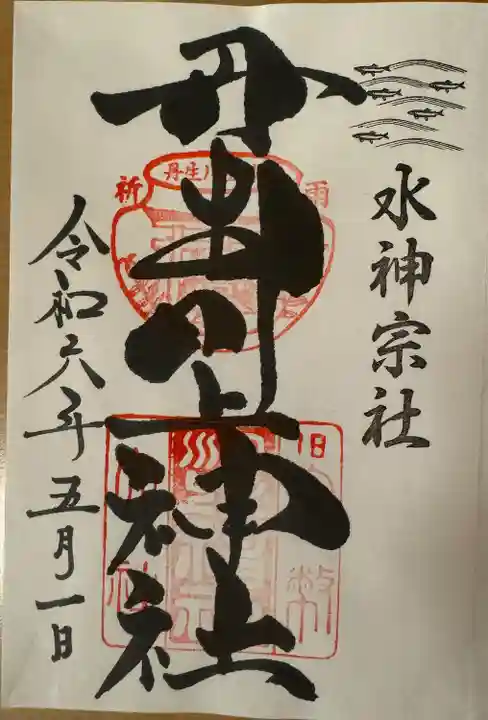 水神宗社
丹生川上神社
令和六年五月一日
丹生川
祈
雨
旧
幣